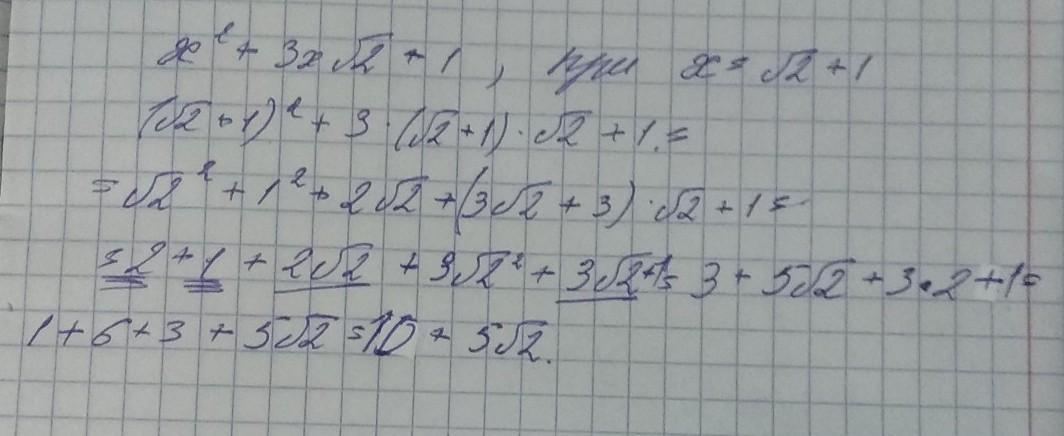 x² + 3x√2 + 1, при x = √2 + 1
(√2 + 1)² + 3 · (√2 + 1) · √2 + 1 =
= √2² + 1² + 2√2 + (3√2 + 3) · √2 + 1 =
= 2 + 1 + 2√2 + 3√2² + 3√2 + 1 = 3 + 5√2 + 3 · 2 + 1 =
1 + 6 + 3 + 5√2 = 10 + 5√2.